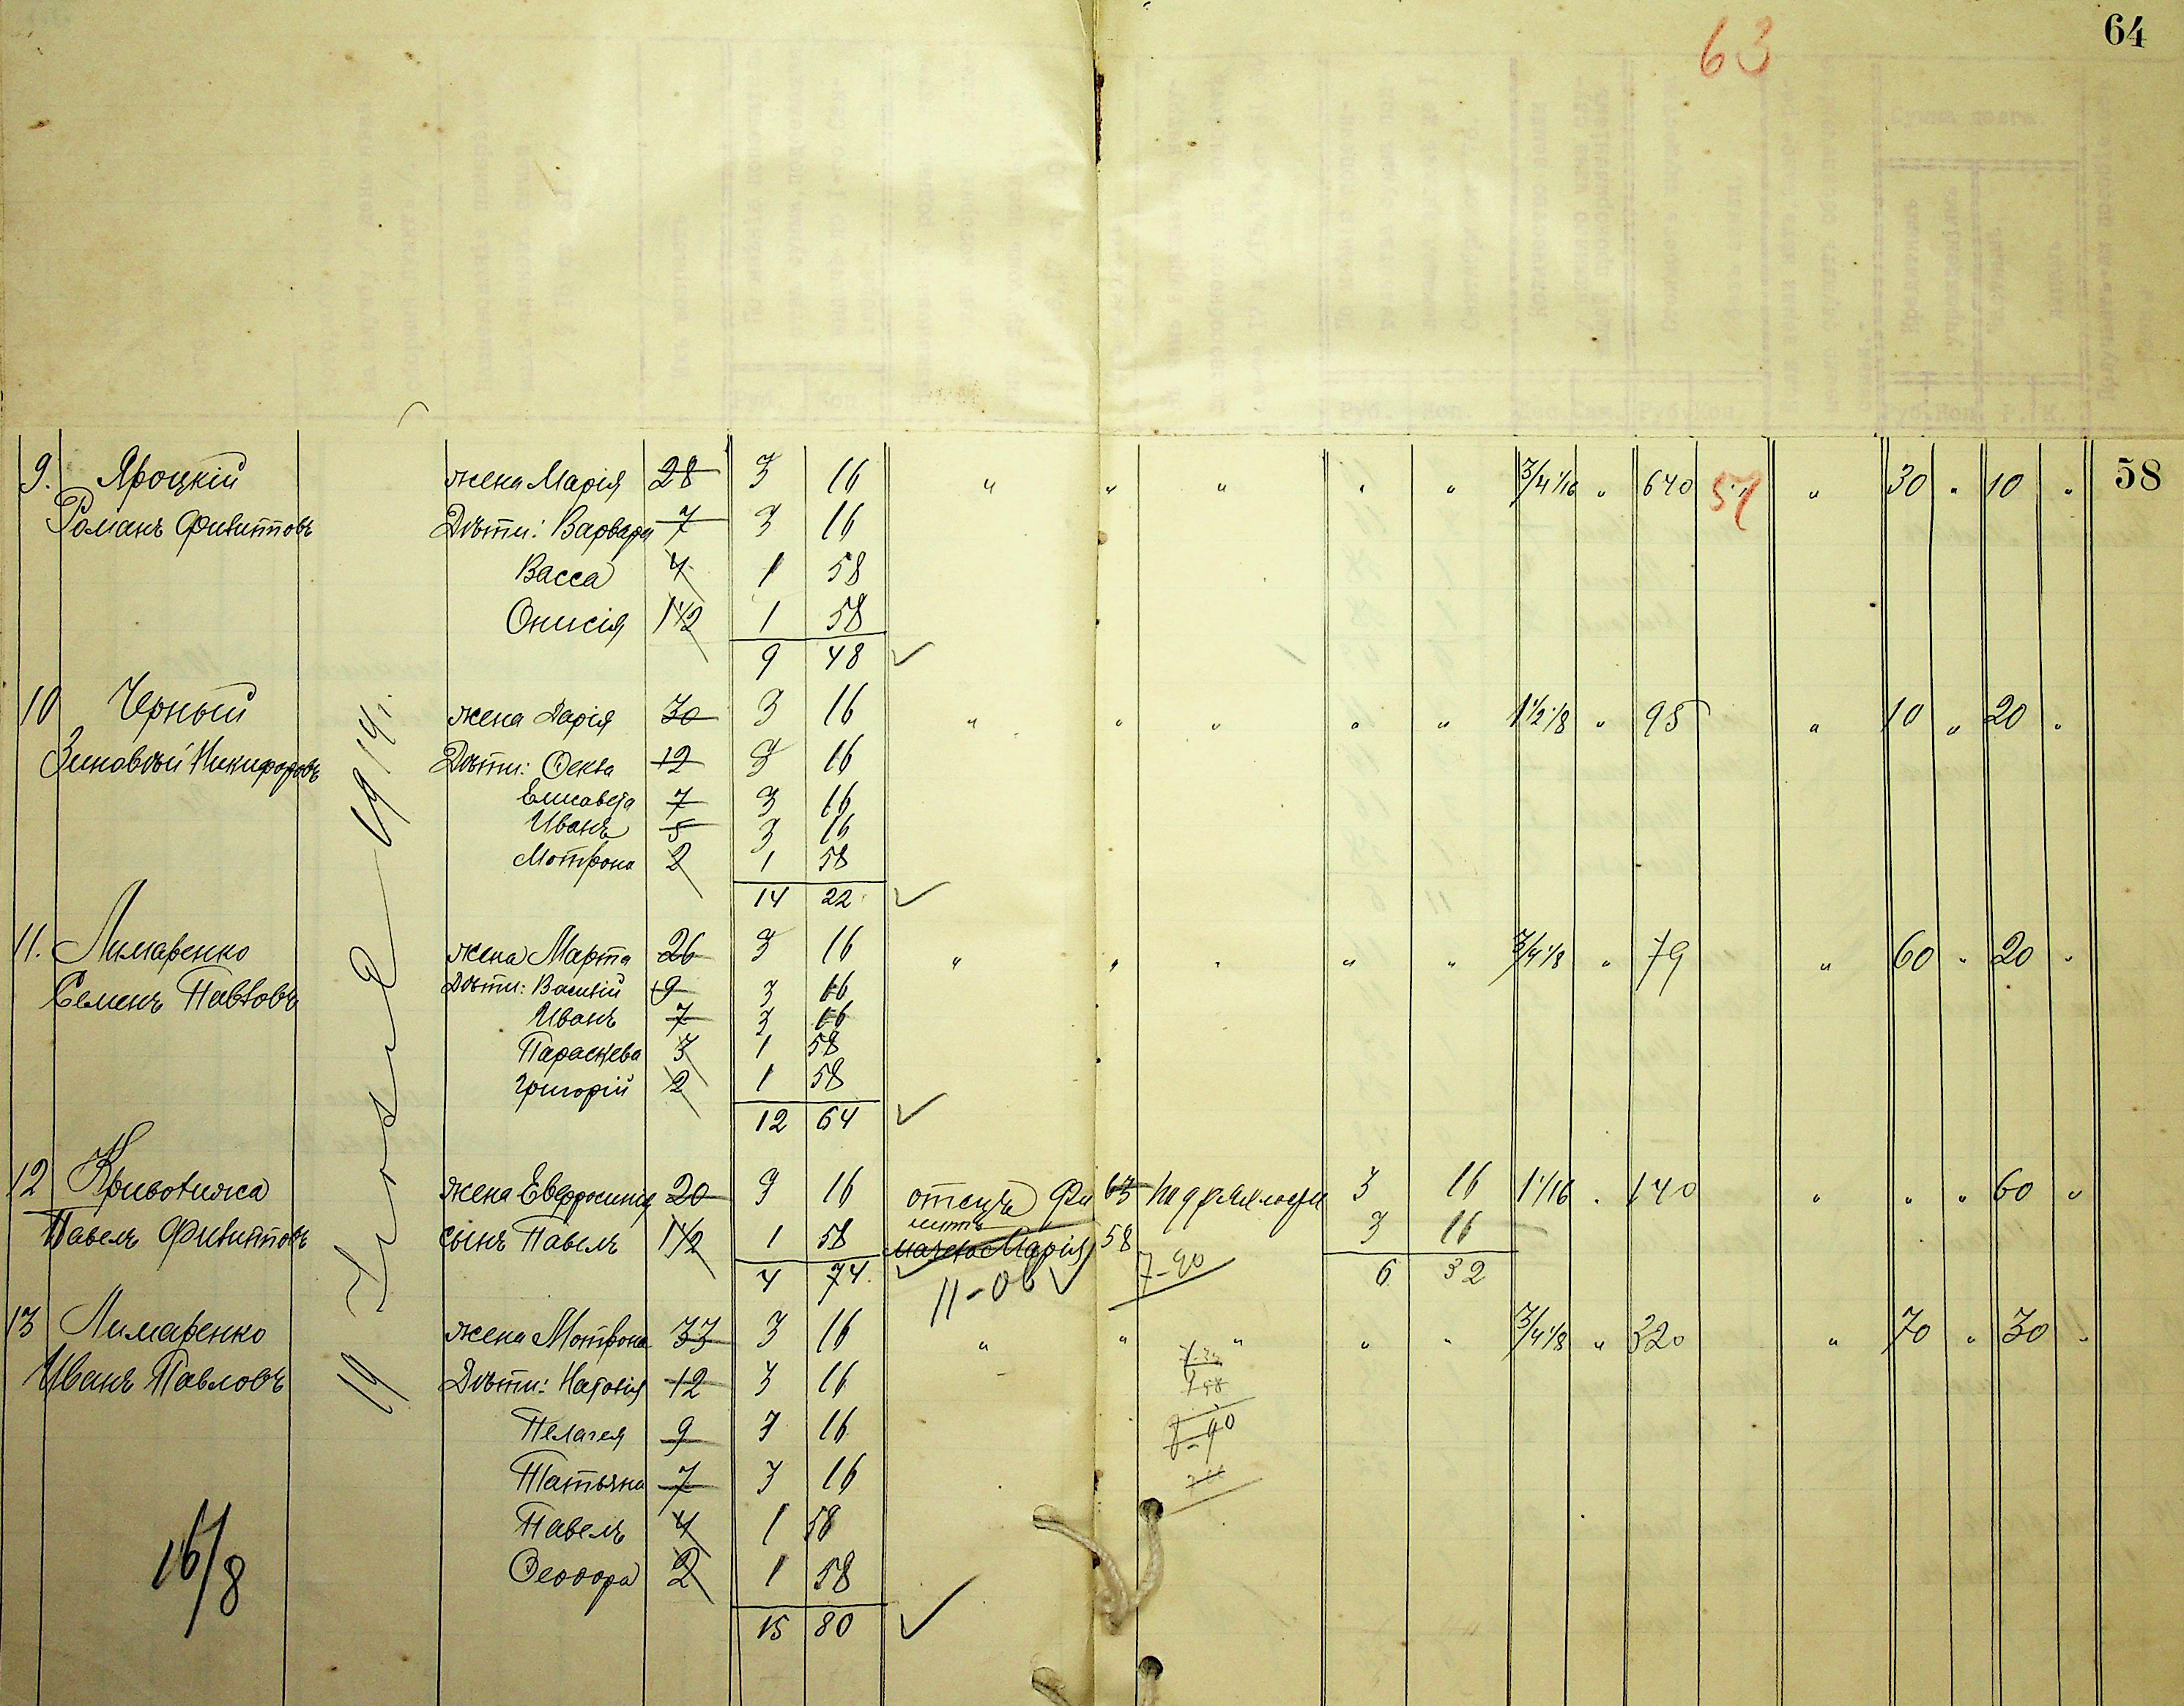 64
63
9. Яроцкій жена Марія 28 3 16 " " " " " 3/4 1/16 " 640 57 " 30 " 10 " 58
Романъ Филипповъ Дѣти: Варвара 7 3 16
Васса 4 1 58
Онисія 1 1/2 1 58
9 48 ✓
10 Черный жена Дарія 30 3 16 " " " " " 1 1/2 1/8 " 95 " 10 " 20 "
Зиновій Никифоровъ Дѣти: Фекла 12 3 16
Елисавета 7 3 16
Иванъ 5 3 16
Мотрона 2 1 58
14 22 ✓
11. Лимаренко жена Марта 26 3 16 " " " " " 3/4 1/8 " 79 " 60 " 20 "
Семенъ Павловъ Дѣти: Василій 9 3 16
Иванъ 7 3 16
Параскева 3 1 58
Григорій 2 1 58
12 64 ✓
12 Кривошижа жена Евфросинія 20 3 16 отецъ Фи 63 3 16 1 1/16 " 140 " " " 60 "
Павелъ Филипповъ сынъ Павелъ 1 1/2 1 58 липпъ Марія 58 3 16
4 74 ✓ 11-06 ✓ 7-90 6 32
13 Лимаренко жена Мотрона 33 3 16 " " " " " 3/4 1/8 " 320 " 70 " 30 "
Иванъ Павловъ Дѣти: Наталія 12 3 16
Пелагея 9 3 16
Татьяна 7 3 16
Павелъ 4 1 58
Феодора 2 1 58
15 80 ✓
16/8
19 1914г.